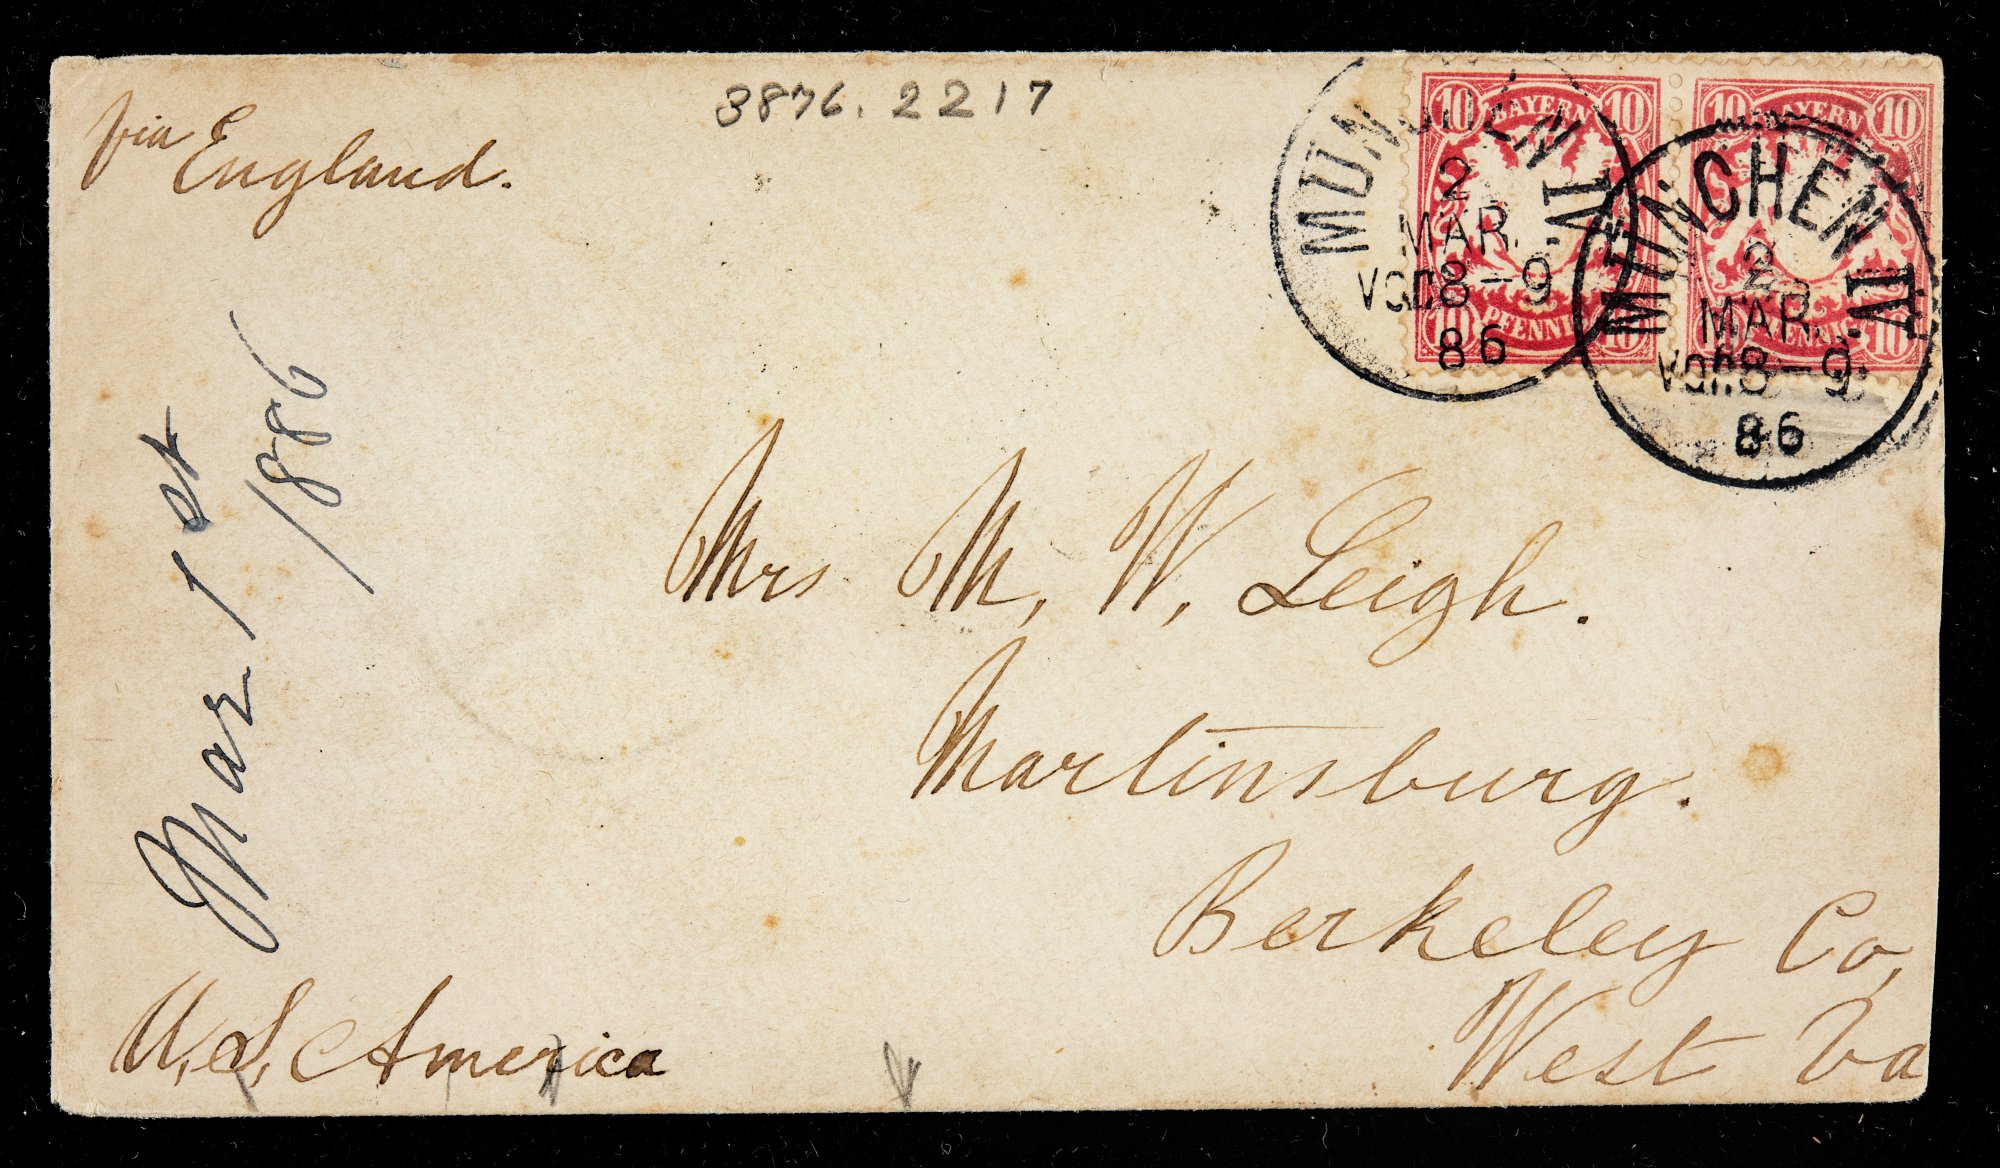 via England.
3876.2217
10 BAYERN 10
10 PFENNIG 10
10 BAYERN 10
10 PFENNIG 10
MÜNCHEN IV.
2
MAR.
Vor. 8-9
86
MÜNCHEN IV.
2
MAR.
Vor. 8-9
86
Mar 1st
1886
Mrs M. W. Leigh.
Martinsburg.
Berkeley Co,
West Va
U. S. America